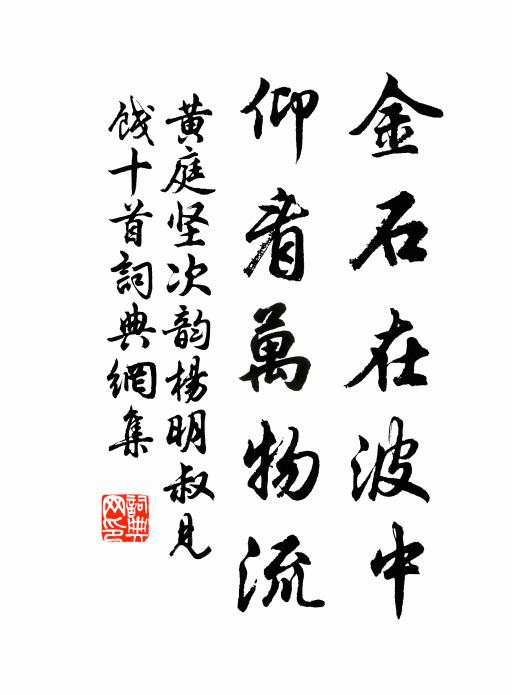 金石在波中
仰看萬物流
黄庭坚次韵楊明叔見
餞十首詞典網集
詞典
网印